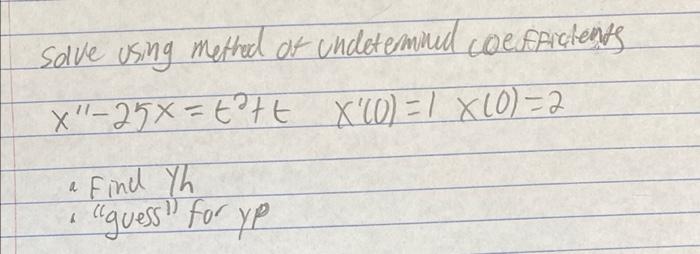 solve using method of undetermined coefficients
x'' - 25x = t² + t   x'(0) = 1   x(0) = 2
• Find Yh
• "guess" for yp